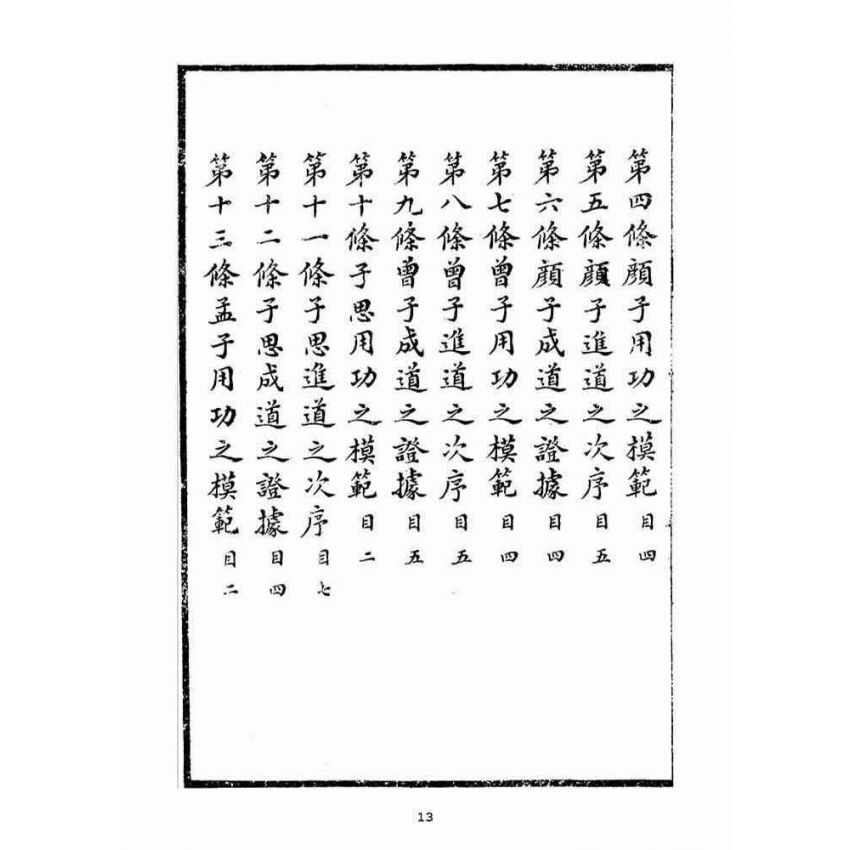 第四條顔子用功之模範目四
第五條顔子進道之次序目五
第六條顔子成道之證據目四
第七條曾子用功之模範目四
第八條曾子進道之次序目五
第九條曾子成道之證據目五
第十條子思用功之模範目二
第十一條子思進道之次序目七
第十二條子思成道之證據目四
第十三條孟子用功之模範目二
13